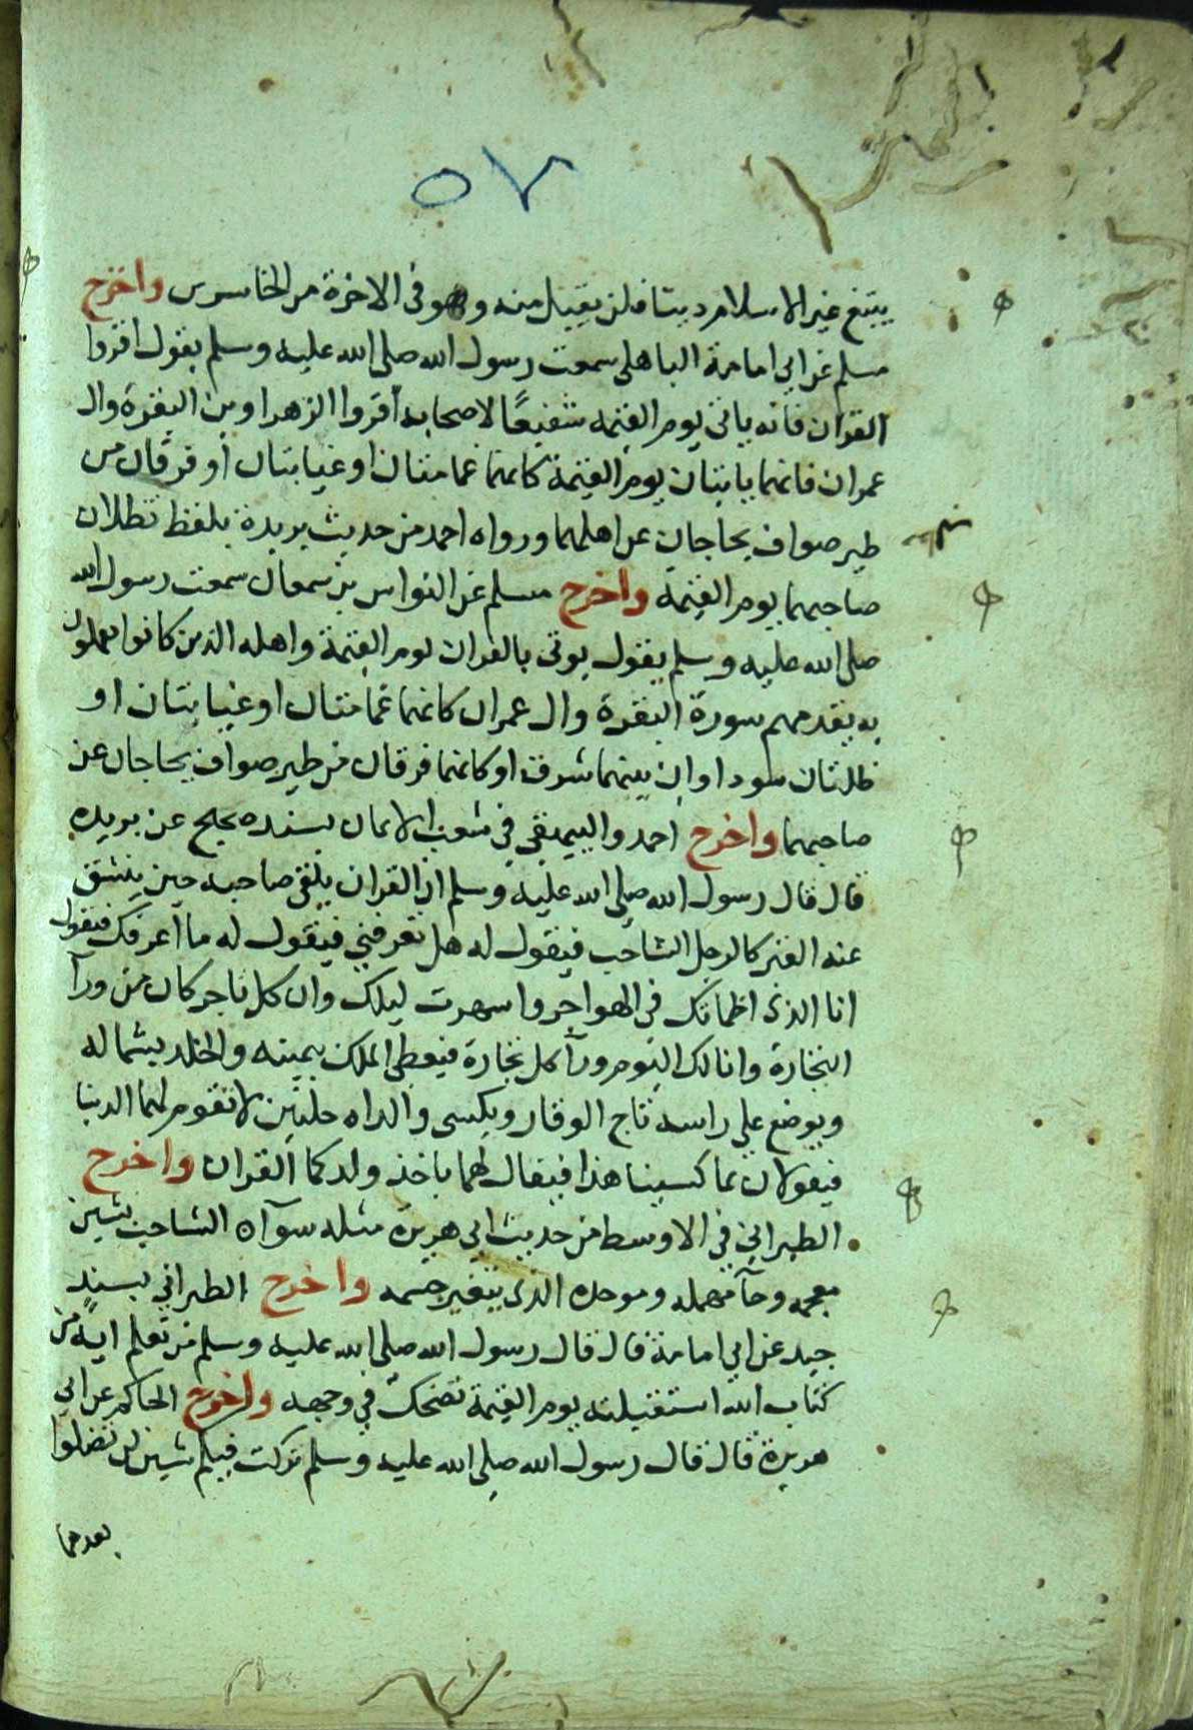 ٥٧
يبتغ غير الاسلام دينا فلن يقبل منه وهو فى الاخرة من الخاسرين واخرج
مسلم عن ابي امامة الباهلى سمعت رسول الله صلى الله عليه وسلم يقول اقروا
القران فانه ياتى يوم القيمه شفيعًا لاصحابه أقروا الزهراوين البقرة وال
عمران فانهما ياتيان يوم القيمة كانهما غمامتان او غيايتان أو فرقان من
طير صواف يحاجان عن اهلهما ورواه احمد من حديث بريدة بلفظ تظلان
صاحبهما يوم القيمة واخرج مسلم عن النواس بن سمعان سمعت رسول الله
صلى الله عليه وسلم يقول يوتى بالقران يوم القيمة واهله الذين كانوا يعملون
به يقدمهم سورة البقرة وال عمران كانهما غمامتان او غيايتان او
ظلتان سوداوان بينهما شرق او كانهما فرقان من طير صواف يحاجان عن
صاحبهما واخرج احمد والبيهقى في شعب الايمان بسند صحيح عن بريده
قال قال رسول الله صلى الله عليه وسلم ان القران يلقى صاحبه حين ينشق
عنه القبر كالرجل الشاحب فيقول له هل تعرفني فيقول له ما أعرفك فيقول
انا الذى اظماتك فى الهواجر واسهرت ليلك وان كل تاجر كان من ورآ
التجارة وانا لك اليوم ورآ كل تجارة فيعطى الملك بيمينه والخلد بشماله
ويوضع على راسه تاج الوقار ويكسى والداه حلتين لا تقوم لهما الدنيا
فيقولان بما كسينا هذا فيقال لهما باخذ ولدكما القران واخرج
الطبراني في الاوسط من حديث ابي هريرة مثله سوآء الشاحب بشين
معجمه وحآ مهمله وموحده الذى يتغير جسمه واخرج الطبراني بسندٍ
جيد عن ابي امامة قال قال رسول الله صلى الله عليه وسلم من تعلم اية من
كتاب الله استقبلته يوم القيمة تضحك في وجهه واخرج الحاكم عن ابي
هريرة قال قال رسول الله صلى الله عليه وسلم تركت فيكم شيئين لن تضلوا
بعدهما